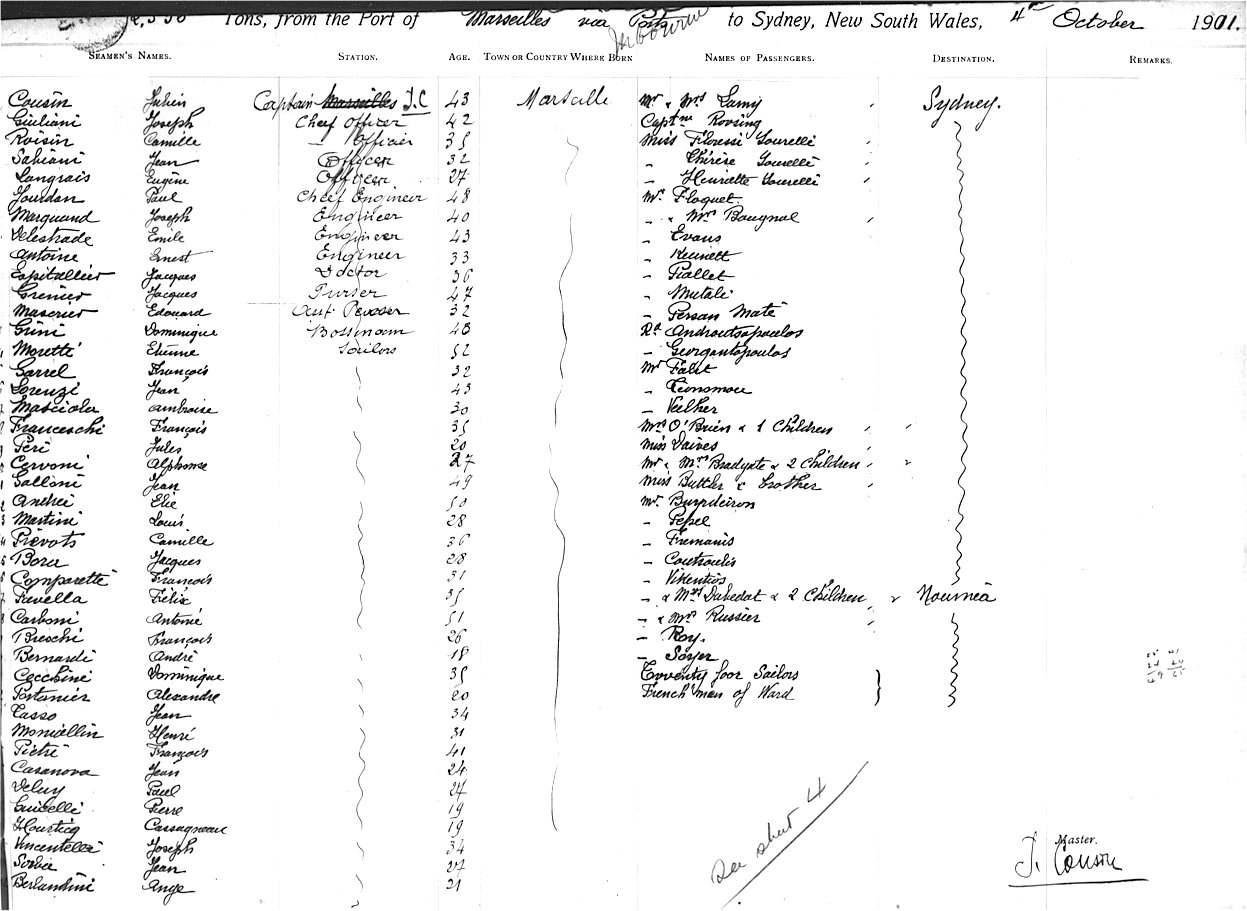 Tons, from the Port of Marseilles via Ports Melbourne to Sydney, New South Wales, 4th October 1901.
SEAMEN'S NAMES. STATION. AGE. TOWN OR COUNTRY WHERE BORN NAMES OF PASSENGERS. DESTINATION. REMARKS.
Cousin Julien Captain Marseilles J.C 43 Marseille Mr & Mrs Lamy Sydney.
Giuliani Joseph Cheef Officer 42 Captne Rovsing
Roisin Camille - Officier 35 Miss Floressi Gourelli
Sabiani Jean Officer 32 - Thérèse Gourelli
Langrais Eugène Officer 27 - Henriette Gourelli
Jourdan Paul Cheef Engineer 48 Mr. Floquet
Marquand Joseph Engineer 40 - & Mrs Bougnol
Delestrade Emile Engineer 43 - Evans
Antoine Ernest Engineer 33 - Kennett
Capitallier Jacques Doctor 36 - Piallet
Grenier Jacques Purser 47 - Mutali
Maserier Edouard Purser 32 - Persan Maté
Grini Dominique Bossman 48 Rd Androutsopoulos
Moretti Etienne Sailors 52 - Georgantopoulos
Garrel François 32 Mr Falit
Lorenzi Jean 43
Masciola Ambroise 30 - Velher
Franceschi François 35 Mrs O'Brien & 1 Children
Peri Jules 20 Miss Daives
Cervoni Alphonse 27 Mr & Mrs Bradgate & 2 Children
Salloni Jean 49 Miss Buttler & brother
Andrei Elie 50 Mr. Burpdeiron
Martini Louis 28 - Pepel
Prevots Camille 36 - Fremanis
Bora Jacques 28 - Coutroulis
Comparetti François 31 - Vikentios
Favella Félix 35 - & Mrs Dubedat & 2 Children Nouméa
Carboni Antoine 51 - & Mrs Russier
Breschi François 26 - Roy.
Bernardi André 18 - Soyer
Cecchini Dominique 35 Twenty foor Sailors
Portanier Alexandre 20 French man of Ward
Casso Jean 34
Monicellin Henri 31
Pietri François 41
Casanova Jean 24
Deluy Paul 27
Guicelli Pierre 19
Hourticq Cassagneau 19
Vincentelli Joseph 34
Sorba Jean 27
Berlandini Ange 21
See sheet 4
Master.
J. Cousin